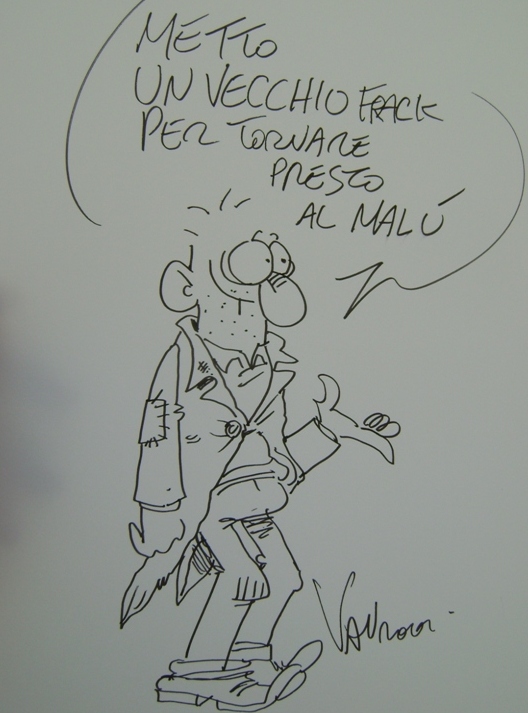 METTO
UN VECCHIO FRACK
PER TORNARE
PRESTO
AL MALÚ